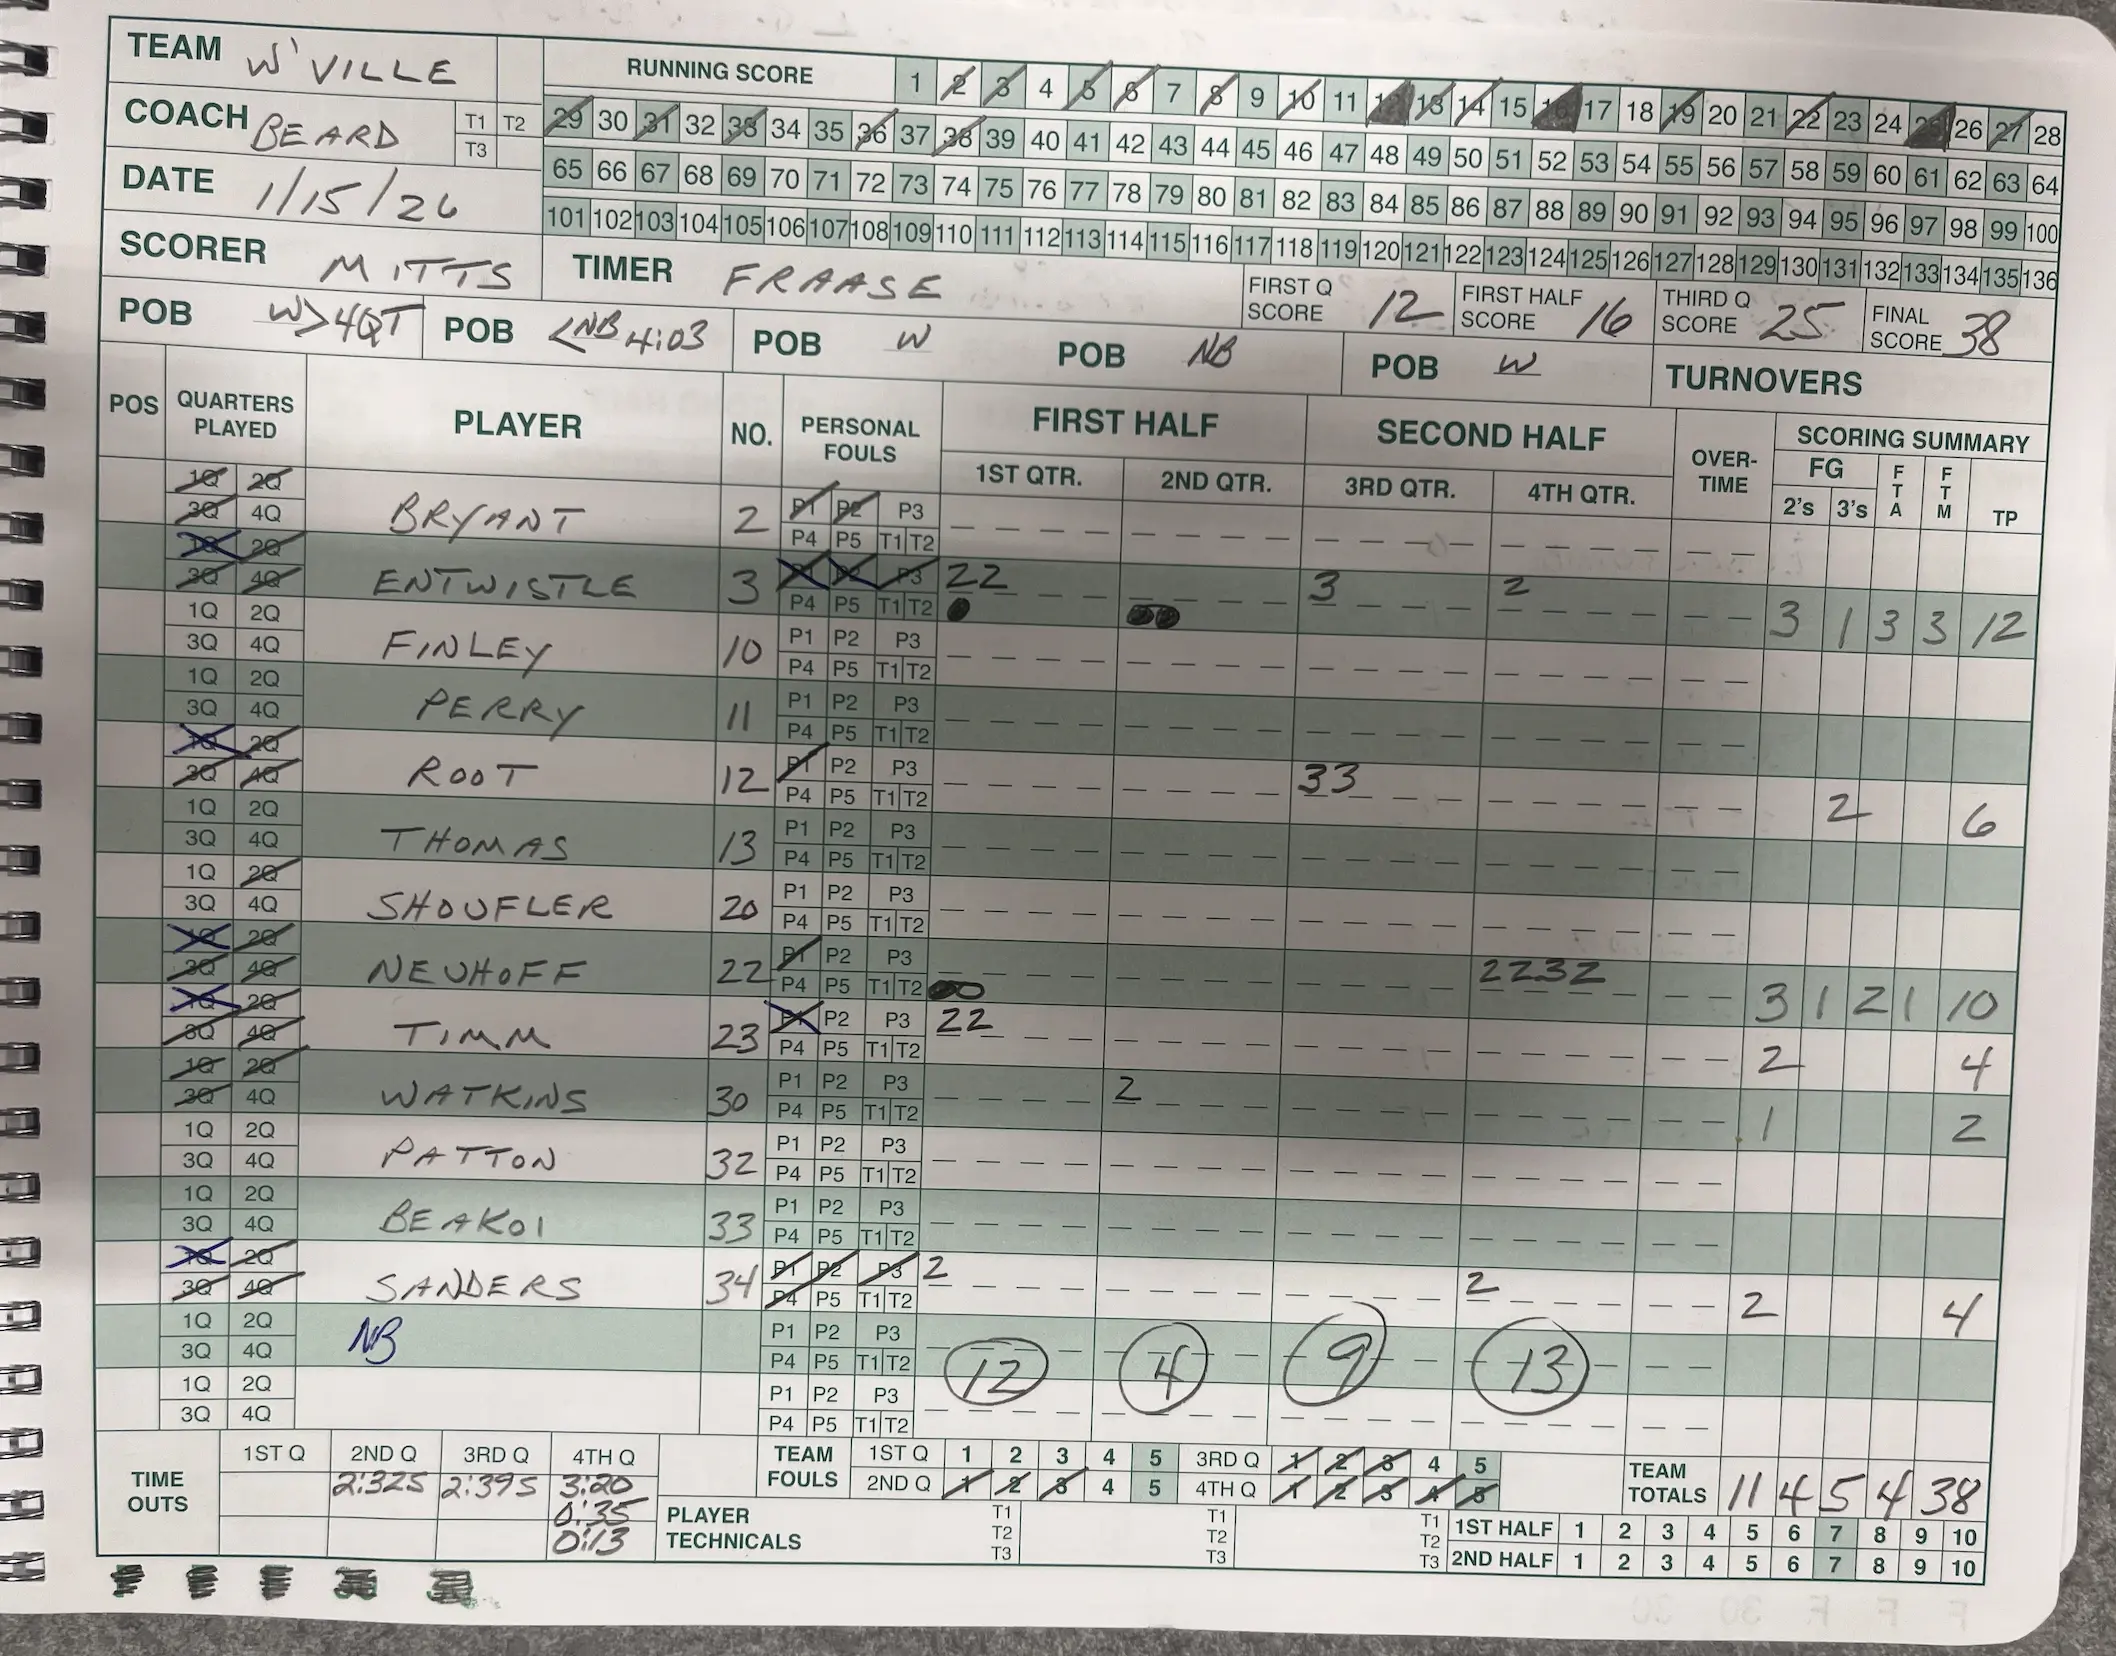 TEAM W'VILLE
RUNNING SCORE 1 2 3 4 5 6 7 8 9 10 11 12 13 14 15 16 17 18 19 20 21 22 23 24 25 26 27 28
COACH BEARD T1 T2 T3
29 30 31 32 33 34 35 36 37 38 39 40 41 42 43 44 45 46 47 48 49 50 51 52 53 54 55 56 57 58 59 60 61 62 63 64
DATE 1/15/26
65 66 67 68 69 70 71 72 73 74 75 76 77 78 79 80 81 82 83 84 85 86 87 88 89 90 91 92 93 94 95 96 97 98 99 100
101 102 103 104 105 106 107 108 109 110 111 112 113 114 115 116 117 118 119 120 121 122 123 124 125 126 127 128 129 130 131 132 133 134 135 136
SCORER MITTS TIMER FRAASE FIRST Q SCORE 12 FIRST HALF SCORE 16 THIRD Q SCORE 25 FINAL SCORE 38
POB W>4QT POB <NB 4:03 POB W POB NB POB W TURNOVERS
POS QUARTERS PLAYED PLAYER NO. PERSONAL FOULS FIRST HALF SECOND HALF OVER-TIME SCORING SUMMARY
1ST QTR. 2ND QTR. 3RD QTR. 4TH QTR. FG 2's 3's FTA FTM TP
1Q 2Q 3Q 4Q BRYANT 2 P1 P2 P3 P4 P5 T1 T2
1Q 2Q 3Q 4Q ENTWISTLE 3 P1 P2 P3 P4 P5 T1 T2 22 3 2 3 1 3 3 12
1Q 2Q 3Q 4Q FINLEY 10 P1 P2 P3 P4 P5 T1 T2
1Q 2Q 3Q 4Q PERRY 11 P1 P2 P3 P4 P5 T1 T2
1Q 2Q 3Q 4Q ROOT 12 P1 P2 P3 P4 P5 T1 T2 33 2 6
1Q 2Q 3Q 4Q THOMAS 13 P1 P2 P3 P4 P5 T1 T2
1Q 2Q 3Q 4Q SHOUFLER 20 P1 P2 P3 P4 P5 T1 T2
1Q 2Q 3Q 4Q NEUHOFF 22 P1 P2 P3 P4 P5 T1 T2 2232 3 1 2 1 10
1Q 2Q 3Q 4Q TIMM 23 P1 P2 P3 P4 P5 T1 T2 22 2 4
1Q 2Q 3Q 4Q WATKINS 30 P1 P2 P3 P4 P5 T1 T2 2 1 2
1Q 2Q 3Q 4Q PATTON 32 P1 P2 P3 P4 P5 T1 T2
1Q 2Q 3Q 4Q BEAKOI 33 P1 P2 P3 P4 P5 T1 T2
1Q 2Q 3Q 4Q SANDERS 34 P1 P2 P3 P4 P5 T1 T2 2 2 2 4
1Q 2Q 3Q 4Q NB P1 P2 P3 P4 P5 T1 T2 12 4 9 13
1Q 2Q 3Q 4Q P1 P2 P3 P4 P5 T1 T2
TIME OUTS 1ST Q 2ND Q 3RD Q 4TH Q
2:325 2:395 3:20
0:35
0:13
TEAM FOULS 1ST Q 1 2 3 4 5 3RD Q 1 2 3 4 5
2ND Q 1 2 3 4 5 4TH Q 1 2 3 4 5
TEAM TOTALS 11 4 5 4 38
PLAYER TECHNICALS T1 T2 T3 T1 T2 T3 T1 T2 T3
1ST HALF 1 2 3 4 5 6 7 8 9 10
2ND HALF 1 2 3 4 5 6 7 8 9 10